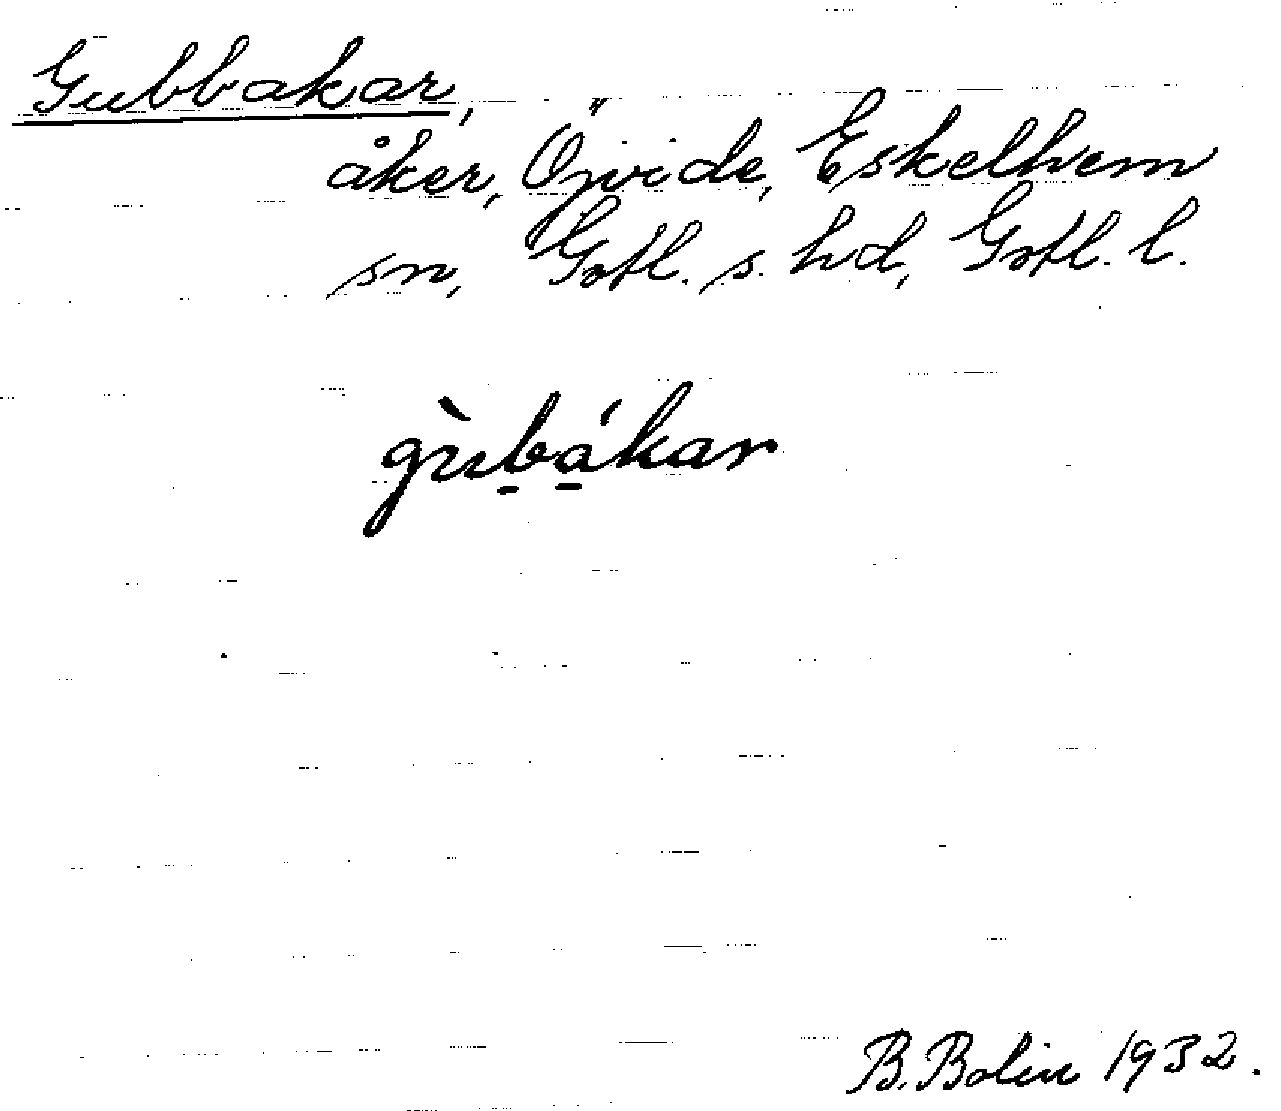 Gubbakar,
åker, Öjvide, Eskelhem
sn, Gotl. s. hd, Gotl. l.
gù̱ḇá̱kar
B. Bolin 1932.